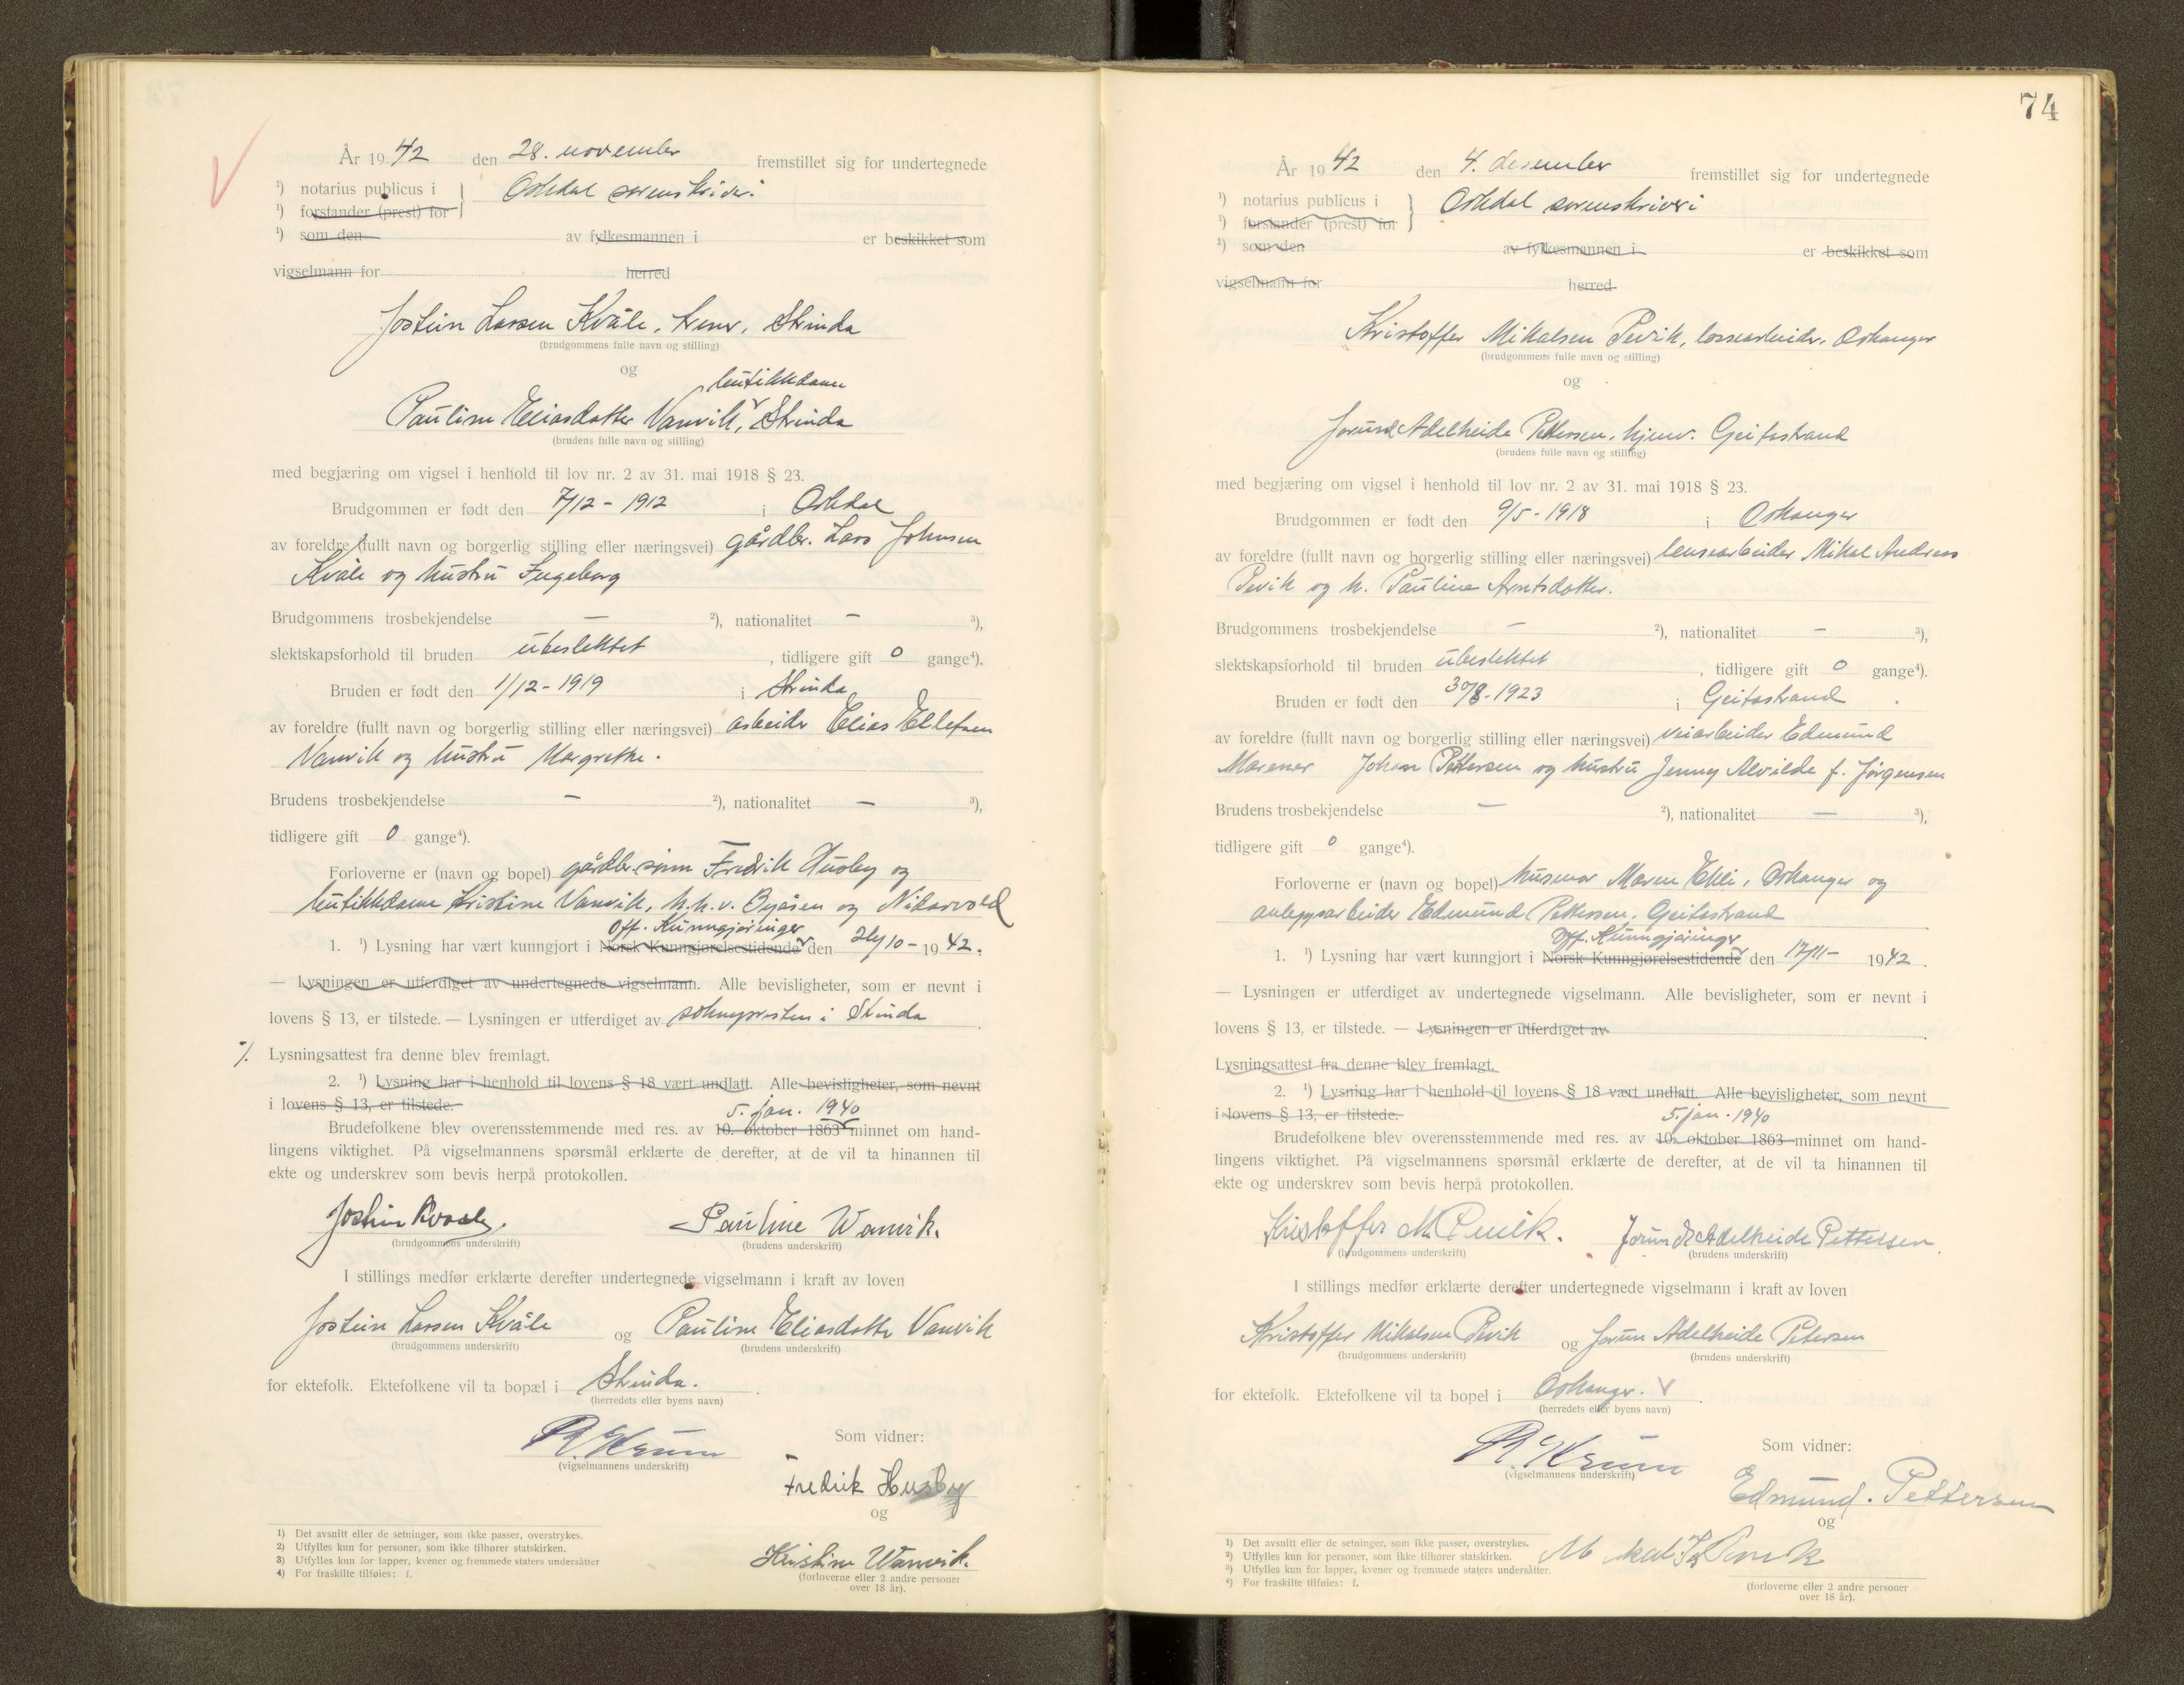 År 1942 den 28. november fremstillet sig for undertegnede
¹) notarius publicus i } Orkdal sorenskriveri
¹) forstander (prest) for
¹) som den av fylkesmannen i er beskikket som
vigselmann for herred
Jostein Larsen Kvåle, Strinda
(brudgommens fulle navn og stilling)
og
butikkdame
Pauline Eliasdatter Vanvik, Strinda
(brudens fulle navn og stilling)
med begjæring om vigsel i henhold til lov nr. 2 av 31. mai 1918 § 23.
Brudgommen er født den 7/12 - 1912 i Orkdal
av foreldre (fullt navn og borgerlig stilling eller næringsvei) gårdbr. Lars Johnsen
Kvåle og hustru Ingeborg
Brudgommens trosbekjendelse — ²), nationalitet — ³),
slektskapsforhold til bruden ubeslektet, tidligere gift 0 gange⁴).
Bruden er født den 1/12 - 1919 i Strinda
av foreldre (fullt navn og borgerlig stilling eller næringsvei) arbeider Elias Ellefsen
Vanvik og hustru Margrethe.
Brudens trosbekjendelse — ²), nationalitet — ³),
tidligere gift 0 gange⁴).
Forloverne er (navn og bopel) gårdbr. sønn Fredrik Husby og
butikkdame Kristine Vanvik, h.h.v. Byåsen og Nidarvold
Off. Kunngjøringer
1. ¹) Lysning har vært kunngjort i Norsk Kunngjørelsestidende den 24/10 - 1942.
— Lysningen er utferdiget av undertegnede vigselmann. Alle bevisligheter, som er nevnt i
lovens § 13, er tilstede. — Lysningen er utferdiget av soknepresten i Strinda.
Lysningsattest fra denne blev fremlagt.
2. ¹) Lysning har i henhold til lovens § 18 vært undlatt. Alle bevisligheter, som nevnt
i lovens § 13, er tilstede.
5. jan. 1940
Brudefolkene blev overensstemmende med res. av 10. oktober 1863 minnet om hand-
lingens viktighet. På vigselmannens spørsmål erklærte de derefter, at de vil ta hinannen til
ekte og underskrev som bevis herpå protokollen.
Jostein Pauline Wanvik.
(brudgommens underskrift) (brudens underskrift)
I stillings medfør erklærte derefter undertegnede vigselmann i kraft av loven
Jostein Larsen Kvåle og Pauline Eliasdatter Vanvik
(brudgommens underskrift) (brudens underskrift)
for ektefolk. Ektefolkene vil ta bopæl i Strinda.
(herredets eller byens navn)
Som vidner:
(vigselmannens underskrift)
Fredrik Husby
og
Kristine Wanvik.
(forloverne eller 2 andre personer
over 18 år).
1) Det avsnitt eller de setninger, som ikke passer, overstrykes.
2) Utfylles kun for personer, som ikke tilhører statskirken.
3) Utfylles kun for lapper, kvener og fremmede staters undersåtter
4) For fraskilte tilføies: f.
74
År 1942 den 4. desember fremstillet sig for undertegnede
¹) notarius publicus i } Orkdal sorenskriveri
¹) forstander (prest) for
¹) som den av fylkesmannen i er beskikket som
vigselmann for herred
Kristoffer Mikalsen Pevik, lossearbeider, Orkanger
(brudgommens fulle navn og stilling)
og
Jorund Adelheide Pettersen, hjemv. Geitastrand
(brudens fulle navn og stilling)
med begjæring om vigsel i henhold til lov nr. 2 av 31. mai 1918 § 23.
Brudgommen er født den 9/5 - 1918 i Orkanger
av foreldre (fullt navn og borgerlig stilling eller næringsvei) lensearbeider Mikal Andreas
Pevik og h. Pauline Arntsdatter.
Brudgommens trosbekjendelse — ²), nationalitet — ³),
slektskapsforhold til bruden ubeslektet, tidligere gift 0 gange⁴).
Bruden er født den 30/8 - 1923 i Geitastrand
av foreldre (fullt navn og borgerlig stilling eller næringsvei) veiarbeider Edmund
Marenor Johan Pettersen og hustru Jenny Alvilde f. Jørgensen
Brudens trosbekjendelse — ²), nationalitet — ³),
tidligere gift 0 gange⁴).
Forloverne er (navn og bopel) husmor Maren Ekli, Orkanger og
anleggsarbeider Edmund Pettersen, Geitastrand
Off. Kunngjøringer
1. ¹) Lysning har vært kunngjort i Norsk Kunngjørelsestidende den 17/11 - 1942.
— Lysningen er utferdiget av undertegnede vigselmann. Alle bevisligheter, som er nevnt i
lovens § 13, er tilstede. — Lysningen er utferdiget av
Lysningsattest fra denne blev fremlagt.
2. ¹) Lysning har i henhold til lovens § 18 vært undlatt. Alle bevisligheter, som nevnt
i lovens § 13, er tilstede.
5. jan. 1940
Brudefolkene blev overensstemmende med res. av 10. oktober 1863 minnet om hand-
lingens viktighet. På vigselmannens spørsmål erklærte de derefter, at de vil ta hinannen til
ekte og underskrev som bevis herpå protokollen.
Kristoffer M. Pevik. Jorund Adelheide Pettersen.
(brudgommens underskrift) (brudens underskrift)
I stillings medfør erklærte derefter undertegnede vigselmann i kraft av loven
Kristoffer Mikalsen Pevik og Jorun Adelheide Petersen
(brudgommens underskrift) (brudens underskrift)
for ektefolk. Ektefolkene vil ta bopel i Orkanger.
(herredets eller byens navn)
Som vidner:
(vigselmannens underskrift)
Edmund. Pettersen
og
Pevik
(forloverne eller 2 andre personer
over 18 år).
1) Det avsnitt eller de setninger, som ikke passer, overstrykes.
2) Utfylles kun for personer, som ikke tilhører statskirken.
3) Utfylles kun for lapper, kvener og fremmede staters undersåtter.
4) For fraskilte tilføies: f.